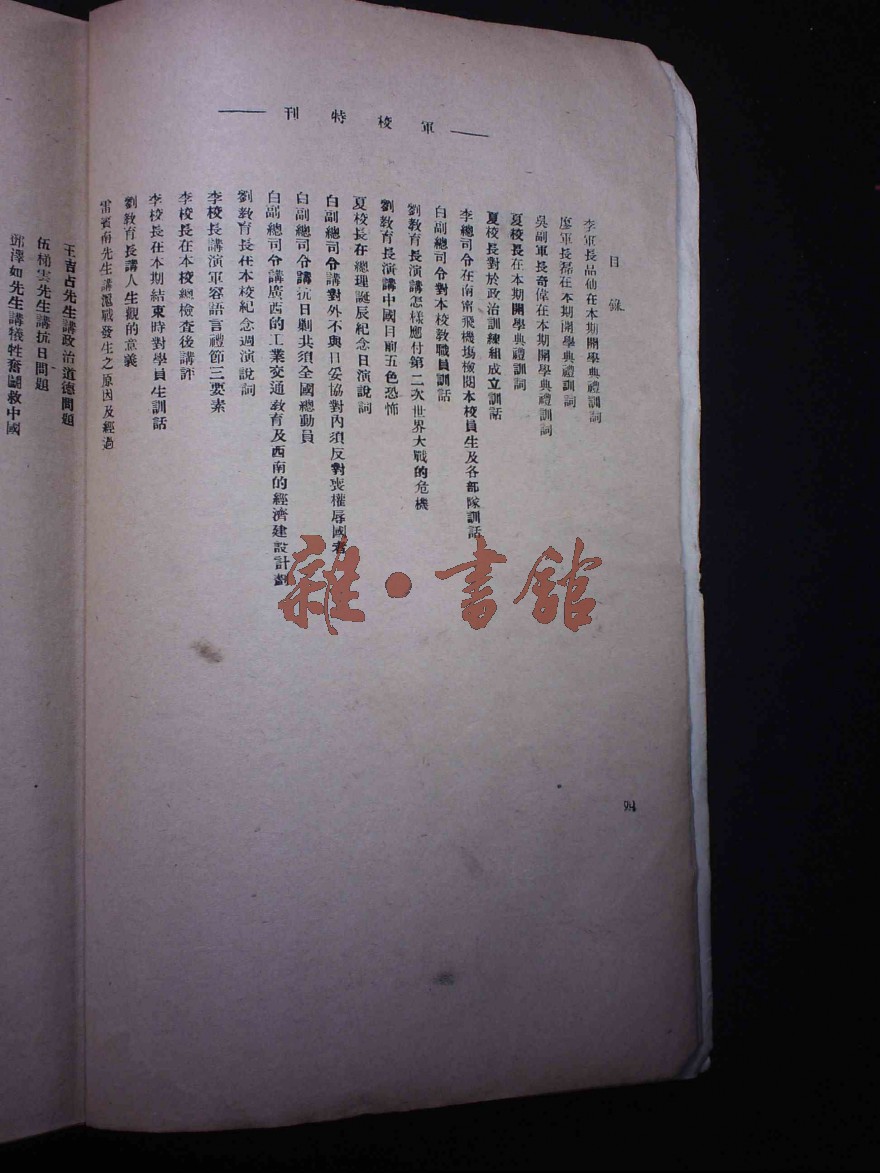 軍校特刊
目錄
李軍長品仙在本期開學典禮訓詞
廖軍長磊在本期開學典禮訓詞
吳副軍長奇偉在本期開學典禮訓詞
夏校長在本期開學典禮訓詞
夏校長對於政治訓練組成立訓話
李總司令在南甯飛機塲檢閱本校員生及各部隊訓話
白副總司令對本校敎職員訓話
劉敎育長演講怎樣應付第二次世界大戰的危機
劉敎育長演講中國目前五色恐怖
夏校長在總理誕辰紀念日演說詞
白副總司令講對外不與日妥協對內須反對喪權辱國者
白副總司令講抗日剿共須全國總動員
白副總司令講廣西的工業交通敎育及西南的經濟建設計劃
劉敎育長在本校紀念週演說詞
李校長講演軍容語言禮節三要素
李校長在本校總檢查後講評
李校長在本期結束時對學員生訓話
劉敎育長講人生觀的意義
雷賓南先生講滬戰發生之原因及經過
王吉占先生講政治道德問題
伍梯雲先生講抗日問題
鄧澤如先生講犧牲奮鬬救中國
雜·書館